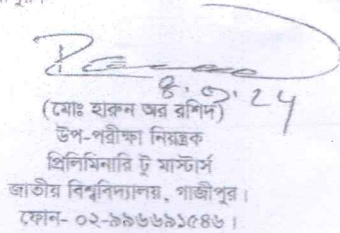 ৪.৭.24
(মোঃ হারুন অর রশিদ)
উপ-পরীক্ষা নিয়ন্ত্রক
প্রিলিমিনারি টু মাস্টার্স
জাতীয় বিশ্ববিদ্যালয়, গাজীপুর।
ফোন- ০২-৯৯৬৬৯১৫৪৬।